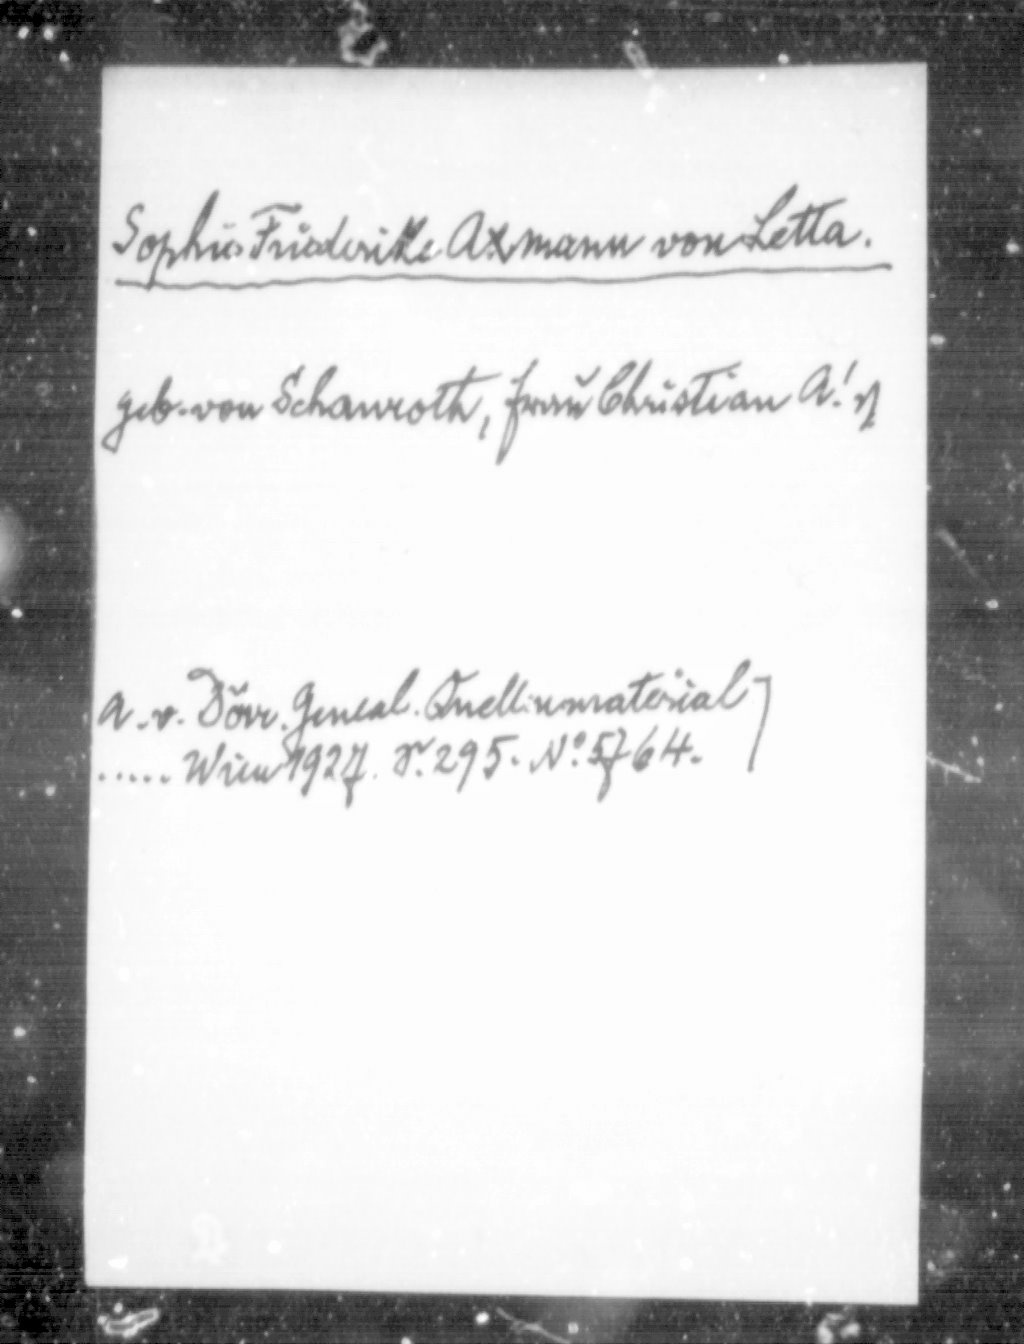 Sophie Friederike Axmann von Letta.
geb. von Schauroth, Frau Christian A!s
A. v. Dörr. Geneal. Quellenmaterial
..... Wien 1927. S. 295. No. 5764.